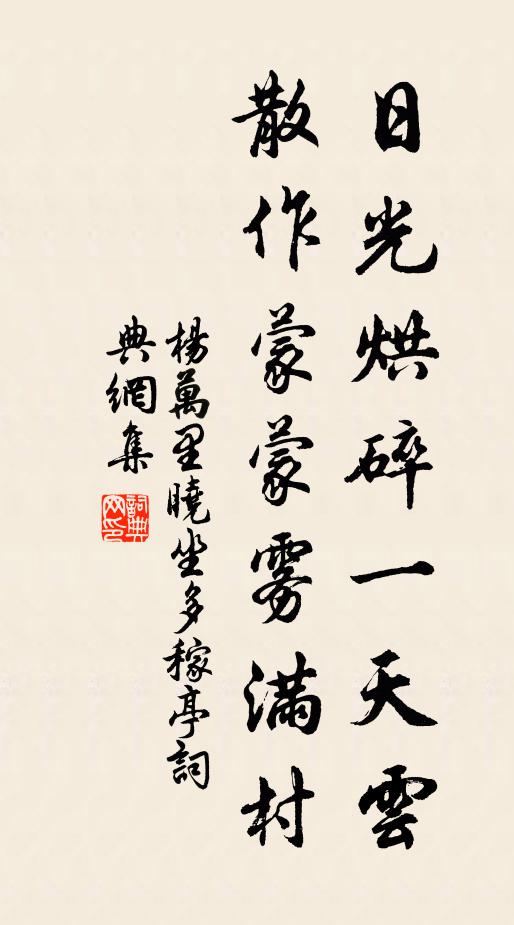 日光烘碎一天雲
散作蒙蒙霧滿村
楊萬里曉坐多稼亭詞
典網集
詞典網印